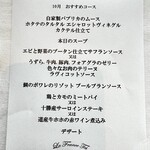 10月 おすすめコース
自家製パプリカのムース
ホタテのタルタル エシャロットヴィネグル
カクテル仕立て
本日のスープ
エビと野菜のブータン仕立てサフランソース
又は
うずら、牛肉、豚肉、フォアグラのゼリー
色々なお肉のテリーヌ
ラヴィゴットソース
鯛のポワレのリゾット ブールブランソース
鴨とカモのミートパイ
又は
十勝産サーロインステーキ
又は
道産牛ホホの赤ワイン煮込み
デザート